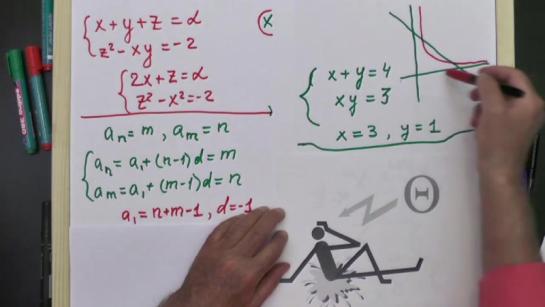 x+y+z=α
z²-xy=-2
(x
2x+z=α
z²-x²=-2
aₙ=m, aₘ=n
aₙ=a₁+(n-1)d=m
aₘ=a₁+(m-1)d=n
a₁=n+m-1, d=-1
x+y=4
xy=3
x=3, y=1
Θ